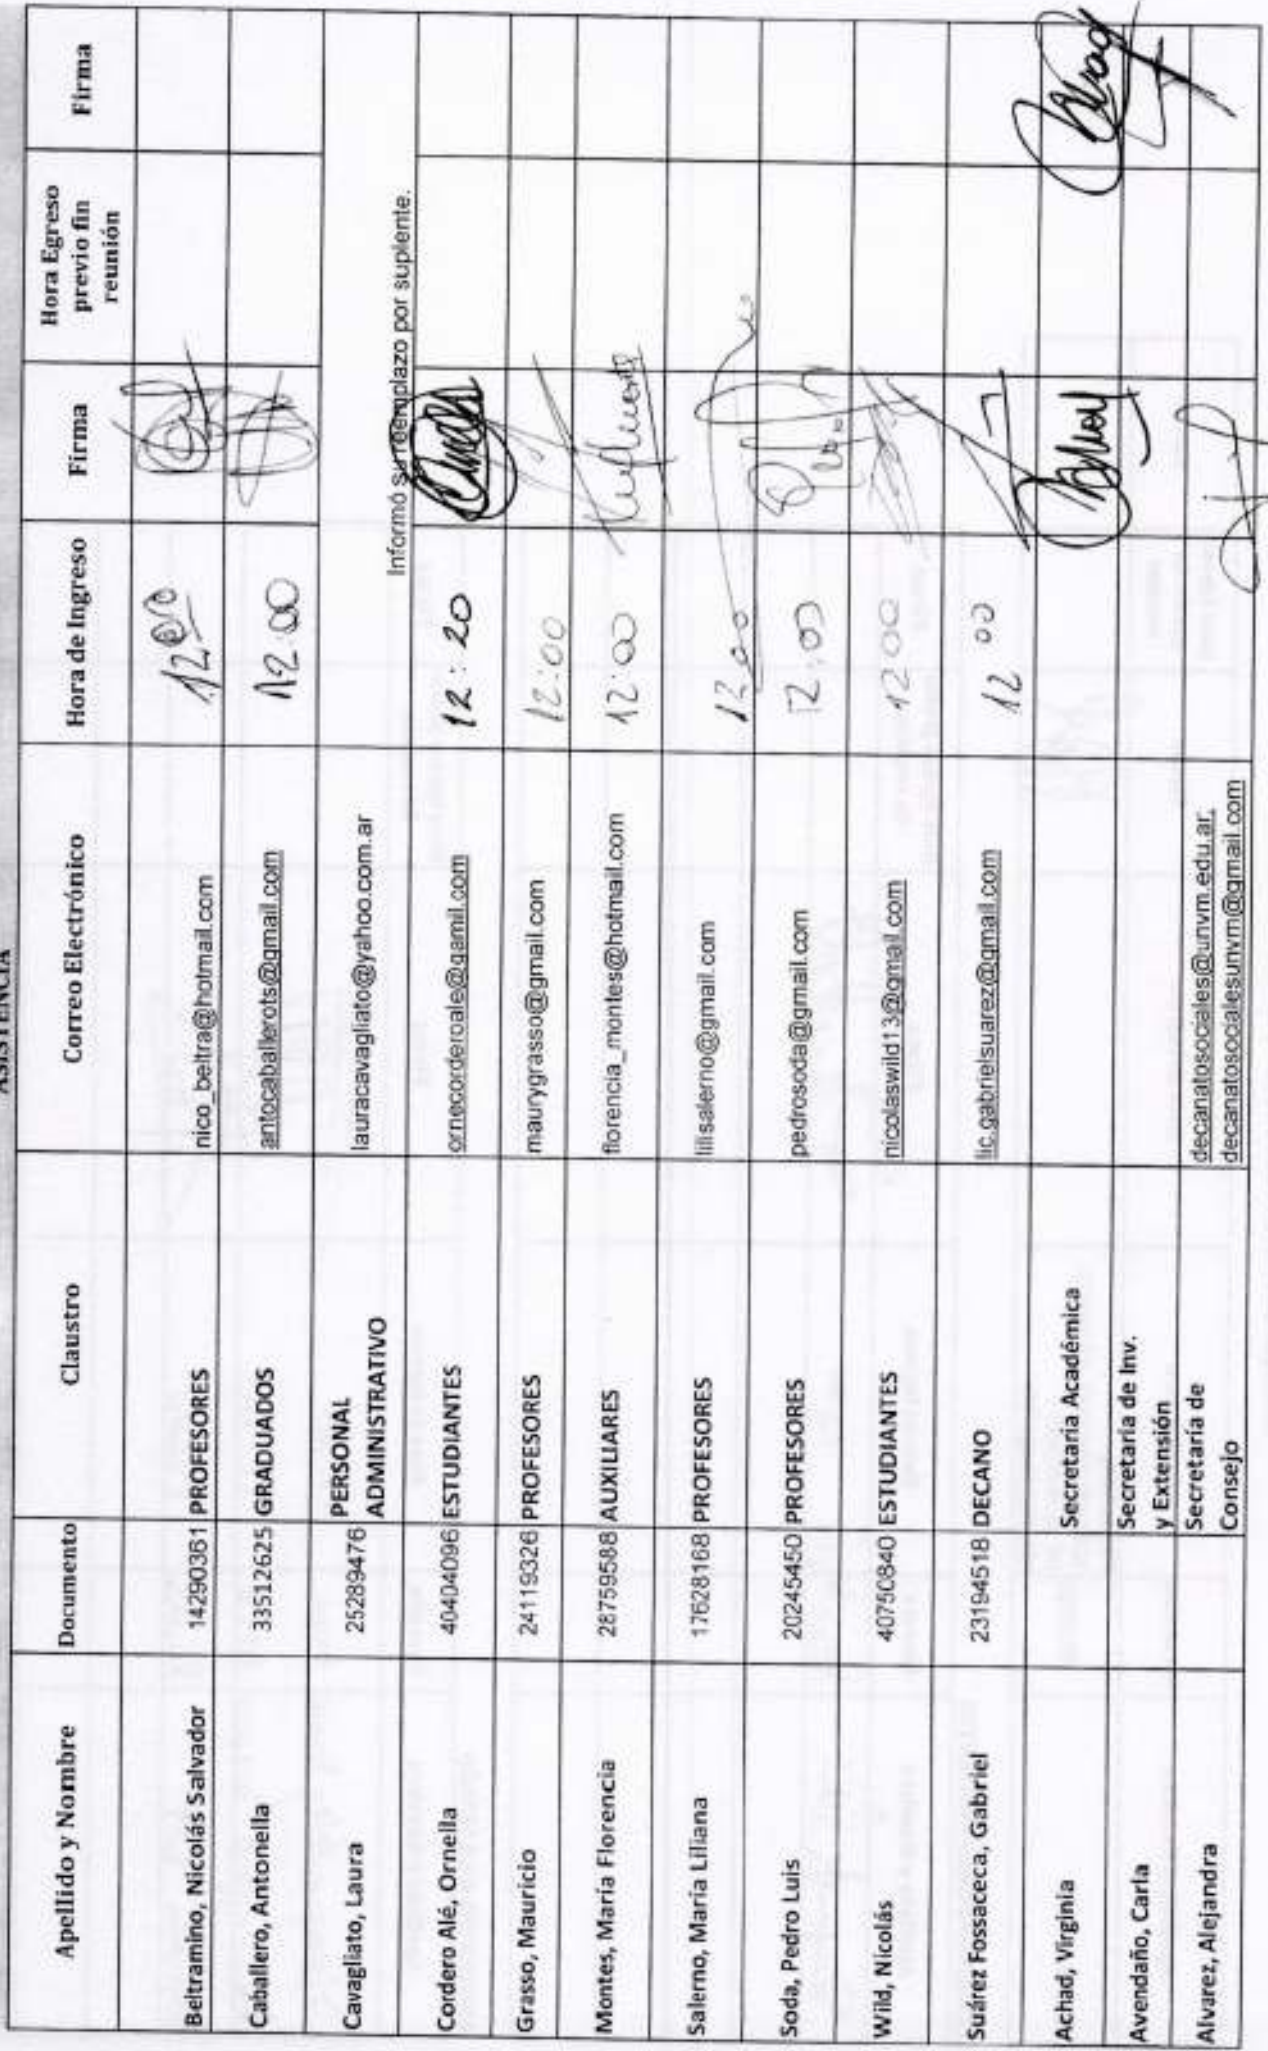 ASISTENCIA
Apellido y Nombre Documento Claustro Correo Electrónico Hora de Ingreso Firma Hora Egreso previo fin reunión Firma
Beltramino, Nicolás Salvador 14290361 PROFESORES nico_beltra@hotmail.com 12
Caballero, Antonella 33512625 GRADUADOS antocaballerots@gmail.com 12:00
Cavagliato, Laura 25289476 PERSONAL ADMINISTRATIVO lauracavagliato@yahoo.com.ar Informó su reemplazo por suplente.
Cordero Alé, Ornella 40404096 ESTUDIANTES ornecorderoale@gamil.com 12:20
Grasso, Mauricio 24119326 PROFESORES maurygrasso@gmail.com 12:00
Montes, María Florencia 28759588 AUXILIARES florencia_montes@hotmail.com 12:00
Salerno, María Liliana 17628168 PROFESORES lilisalerno@gmail.com 12,00
Soda, Pedro Luis 20245450 PROFESORES pedrosoda@gmail.com 12:00
Wild, Nicolás 40750840 ESTUDIANTES nicolaswild13@gmail.com 12 00
Suárez Fossaceca, Gabriel 23194518 DECANO lic.gabrielsuarez@gmail.com 12 00
Achad, Virginia Secretaria Académica
Avendaño, Carla Secretaria de Inv. y Extensión
Alvarez, Alejandra Secretaría de Consejo decanatosociales@unvm.edu.ar, decanatosocialesunvm@gmail.com